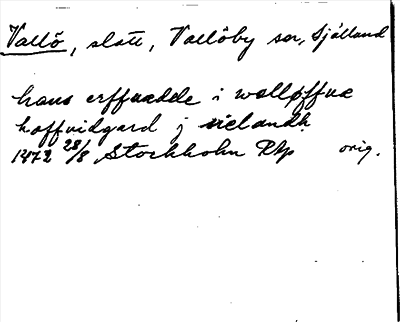 Vallö, slott, Vallöby sn, Själland
hans erffuedde i walløffue
hoffuidgard j sielandh
1472 28/8 Stockholm RAp orig.